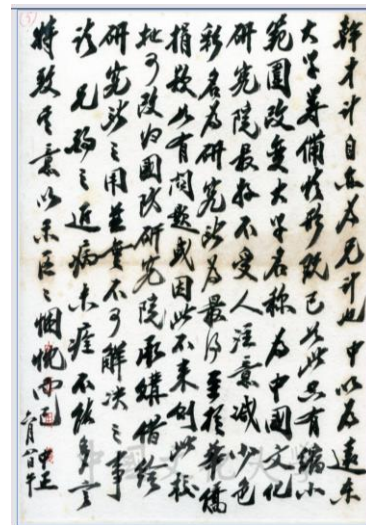 幹才計自亦為兄計也 中以為遠東
大學籌備情形既已如此只有縮小
範圍改變大學名稱 為中國文化
研究院最好不受人注意減少色
彩名為研究所為最得至於華僑
捐款如有問題或因此不來則此校
址可改由國防研究院承購借給
研究所之用並無不可解決之事
諒兄弱之近病未痊不能多言
特致其意以示區區 惘愧而已 中正
六月八日午
中國文化大學